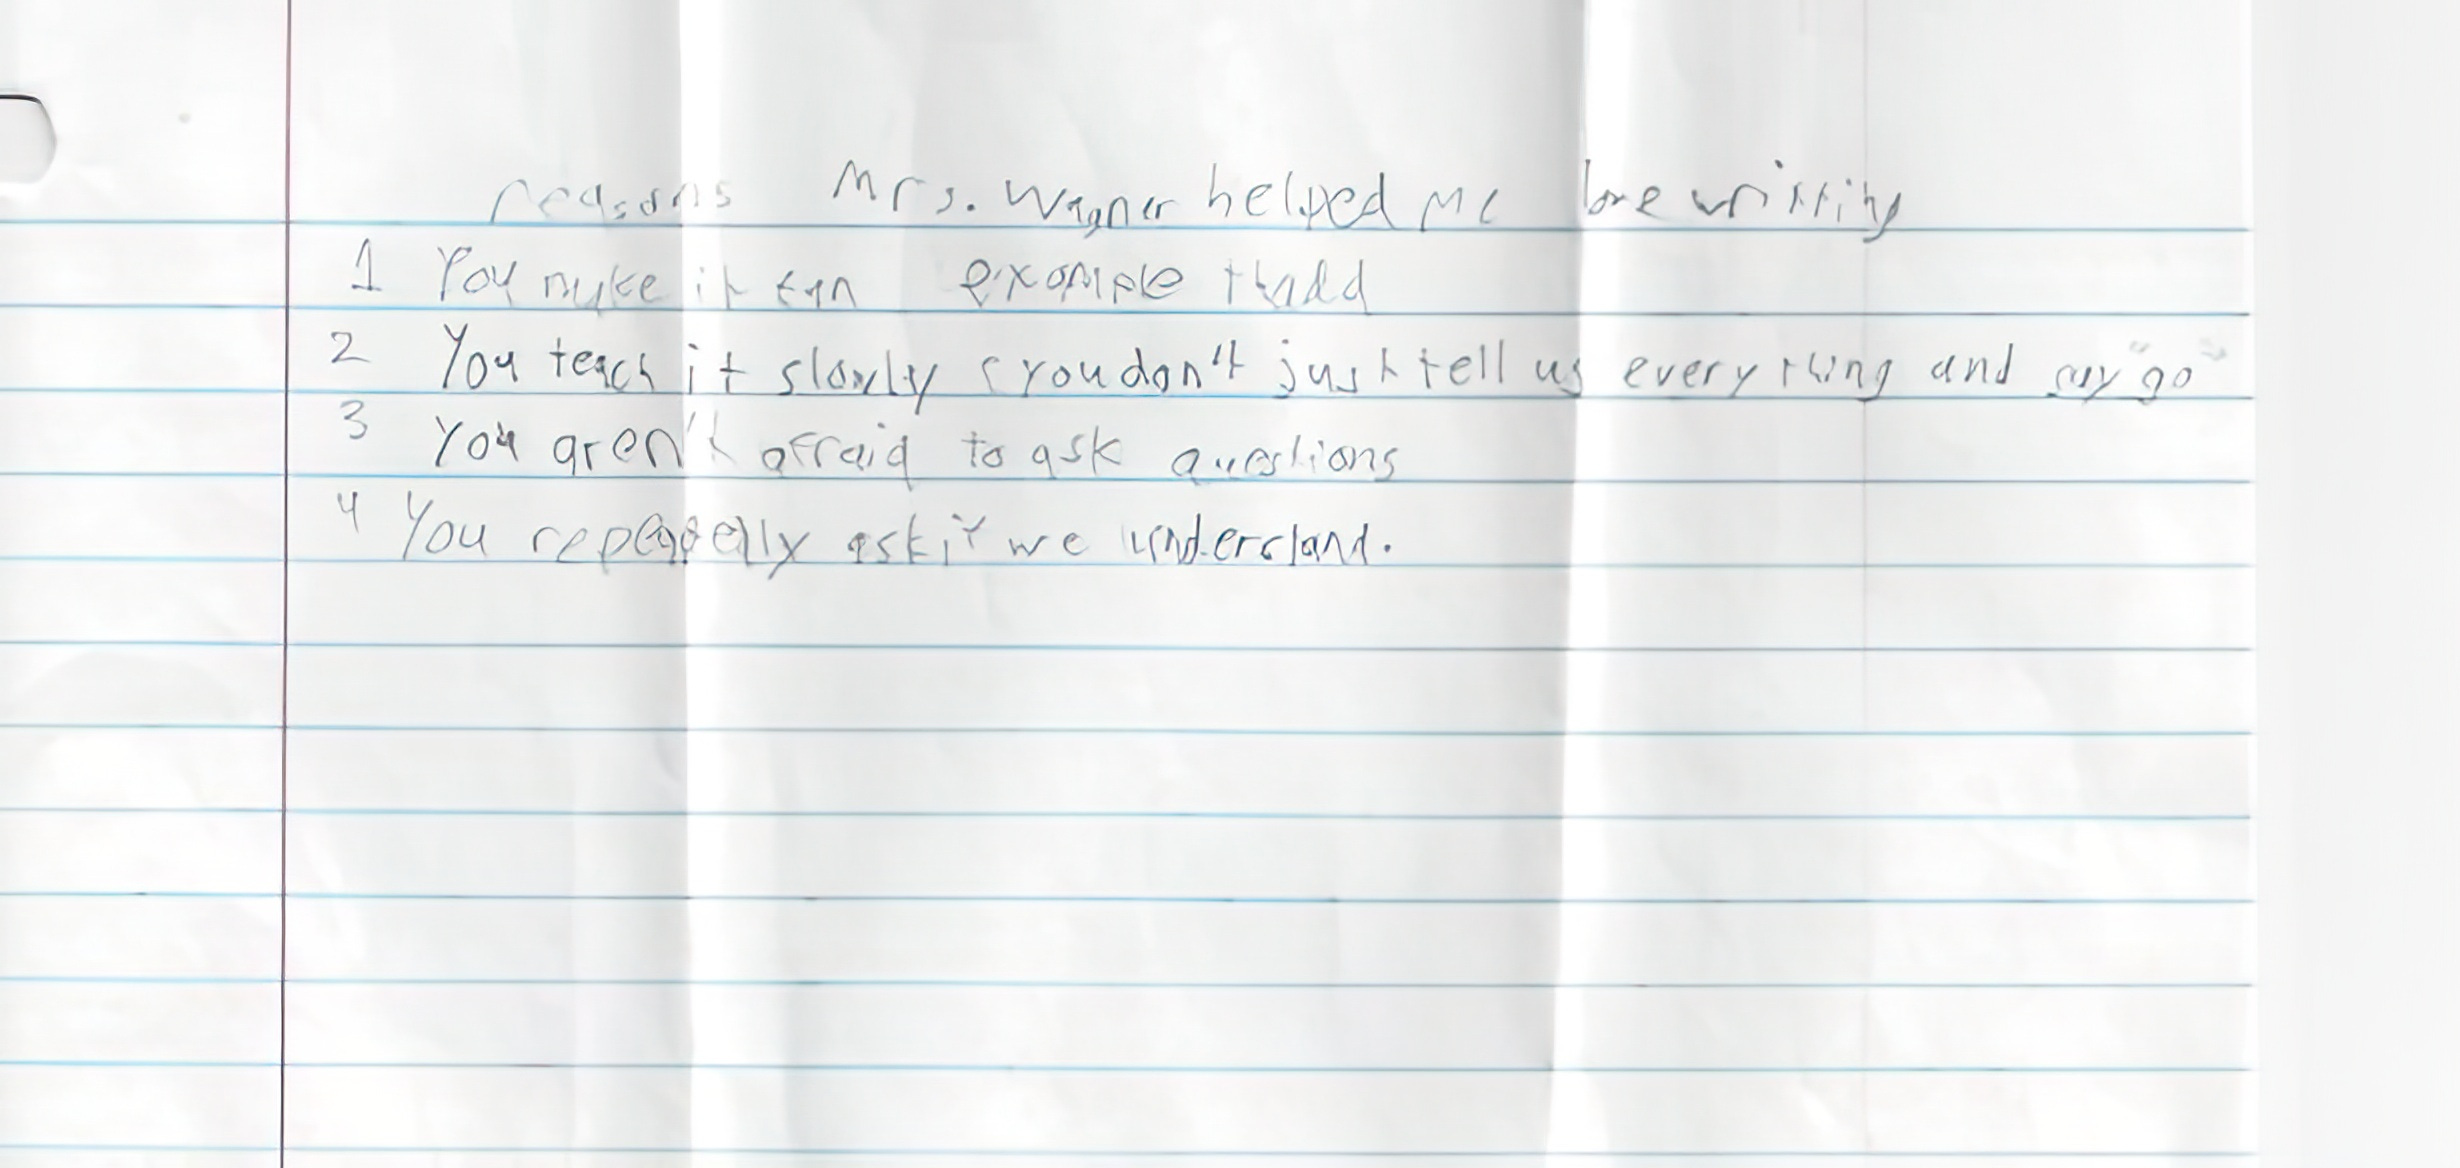 reasons Mrs. Wagner helped me love writting
1 You make it fun example thadd
2 You teach it slowly (you don't just tell us everything and say "go"
3 You aren't afraid to ask questions
4 You repeatedly ask if we understand.